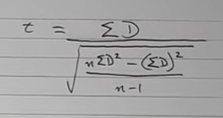 t = ΣD / √((nΣD² − (ΣD)²) / (n−1))